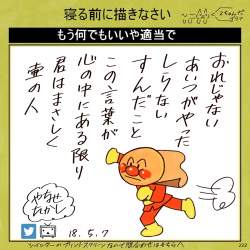 寝る前に描きなさい
もう何でもいいや適当で
おれじゃない
あいつがやった
しらない
すんだこと
この言葉が
心の中にある限り
君はまさしく
壷の人
やなせ
たかし
18.5.7